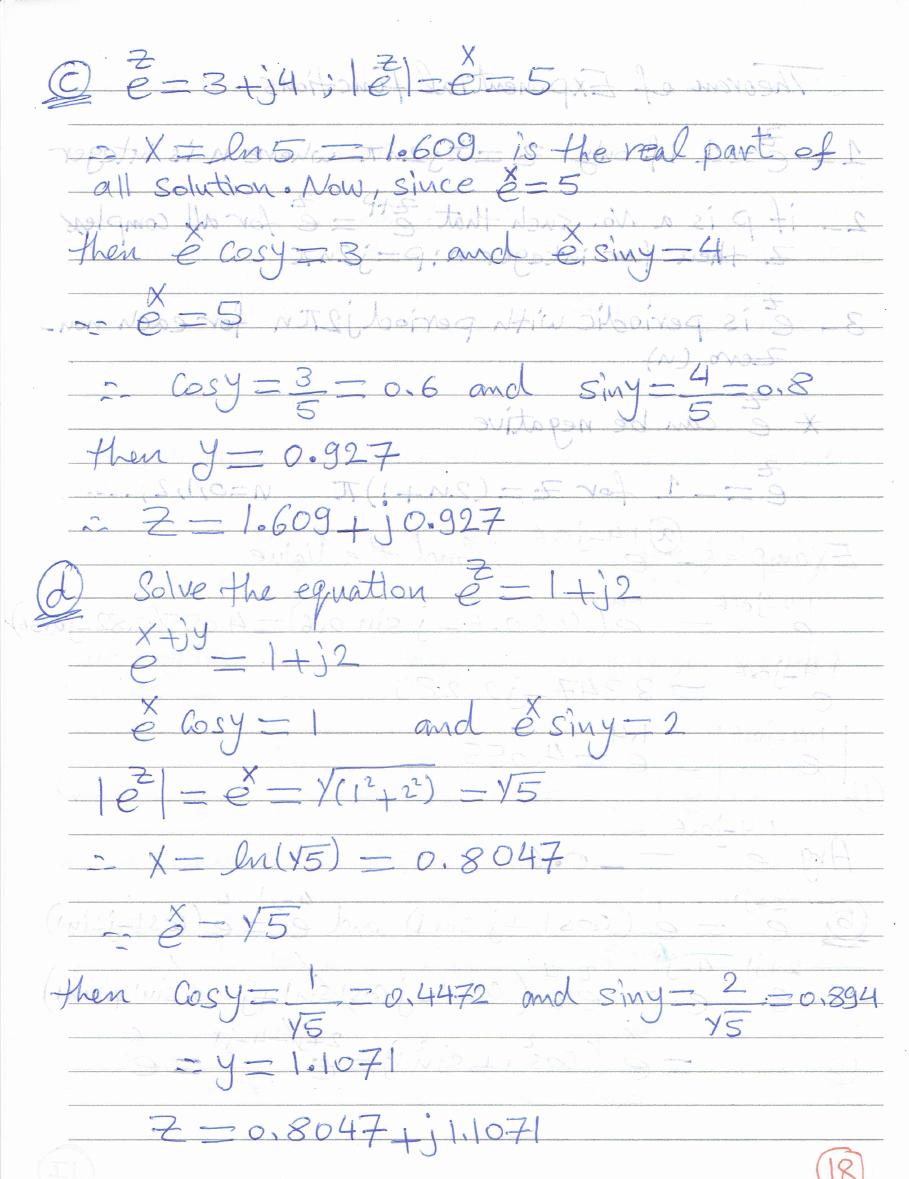 ⓒ e^z = 3 + j4 ; |e^z| = e^x = 5
∴ x = ln 5 = 1.609 is the real part of
all solution. Now, since e^x = 5
then e^x cosy = 3 and e^x siny = 4
∵ e^x = 5
∴ cosy = 3/5 = 0.6 and siny = 4/5 = 0.8
then y = 0.927
∴ z = 1.609 + j 0.927
ⓓ Solve the equation e^z = 1 + j2
e^(x+jy) = 1 + j2
e^x cosy = 1 and e^x siny = 2
|e^z| = e^x = √(1²+2²) = √5
∴ x = ln(√5) = 0.8047
∵ e^x = √5
then cosy = 1/√5 = 0.4472 and siny = 2/√5 = 0.894
∴ y = 1.1071
z = 0.8047 + j 1.1071
18